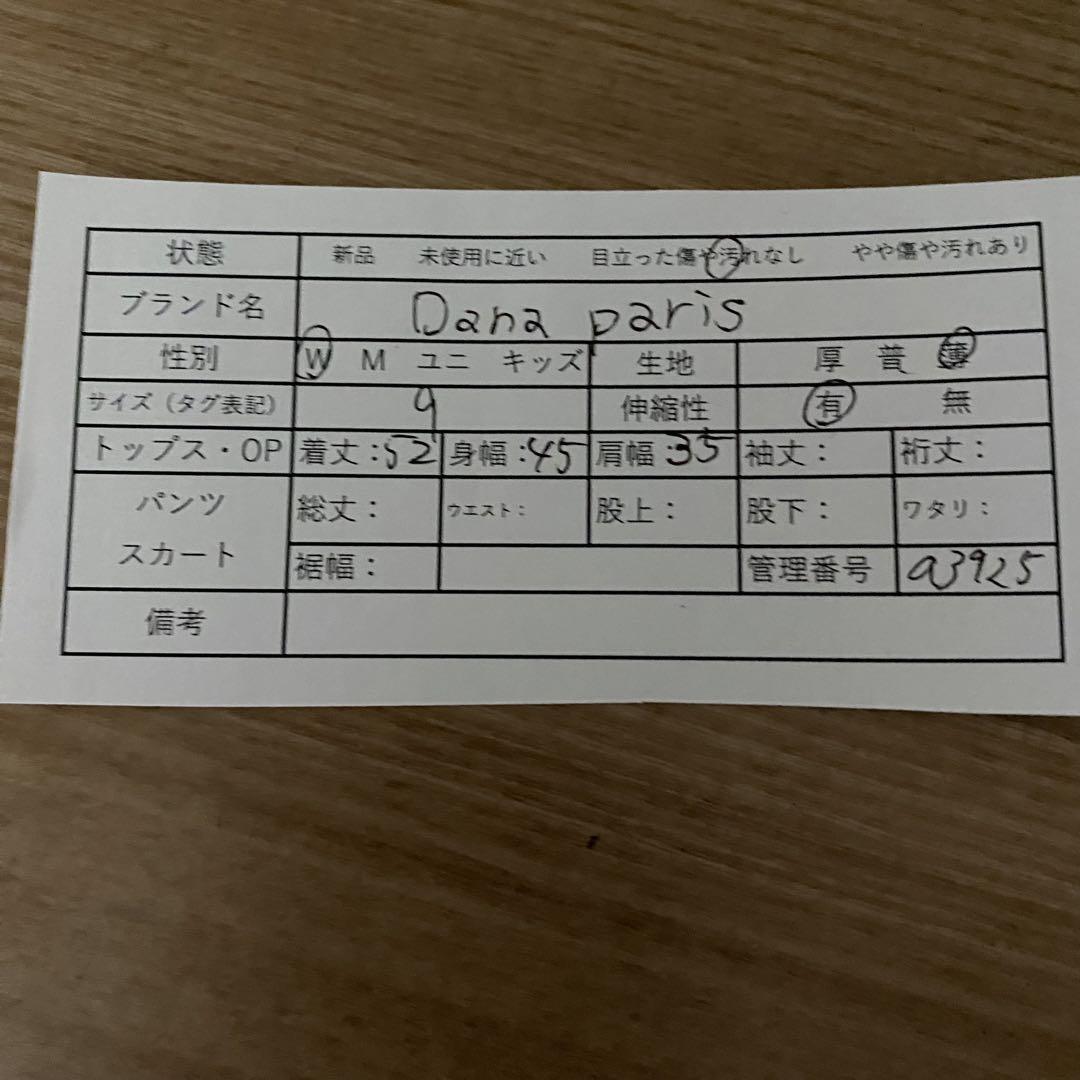 状態 新品 未使用に近い 目立った傷や汚れなし やや傷や汚れあり
ブランド名 Dana paris
性別 W M ユニ キッズ 生地 厚 普 薄
サイズ（タグ表記） 9 伸縮性 有 無
トップス・OP 着丈：52 身幅：45 肩幅：35 袖丈： 裄丈：
パンツ 総丈： ウエスト： 股上： 股下： ワタリ：
スカート 裾幅： 管理番号 a3925
備考